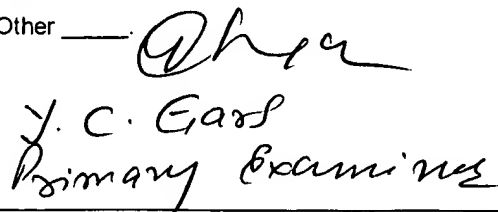 Other ____.
Y. C. Garg
Primary Examiner